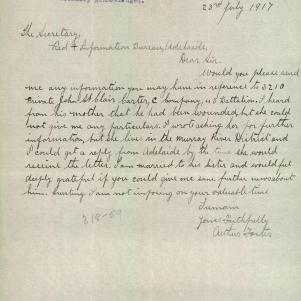 23rd July 1917
The Secretary,
Red + Information Bureau, Adelaide,
Dear Sir
Would you please send
me any information you may have in reference to 3210
Private John St Clair Carter, C Company, 48 Battalion. I heard
from his mother that he had been wounded but she could
not give me any particulars. I wrote asking her for further
information but she lives in the Murray River District and
I could get a reply from Adelaide by the time she would
receive the letter. I am married to his sister and would feel
deeply grateful if you could give me some further news about
him. Trusting I am not imposing on your valuable time
I remain
Yours Faithfully
Arthur